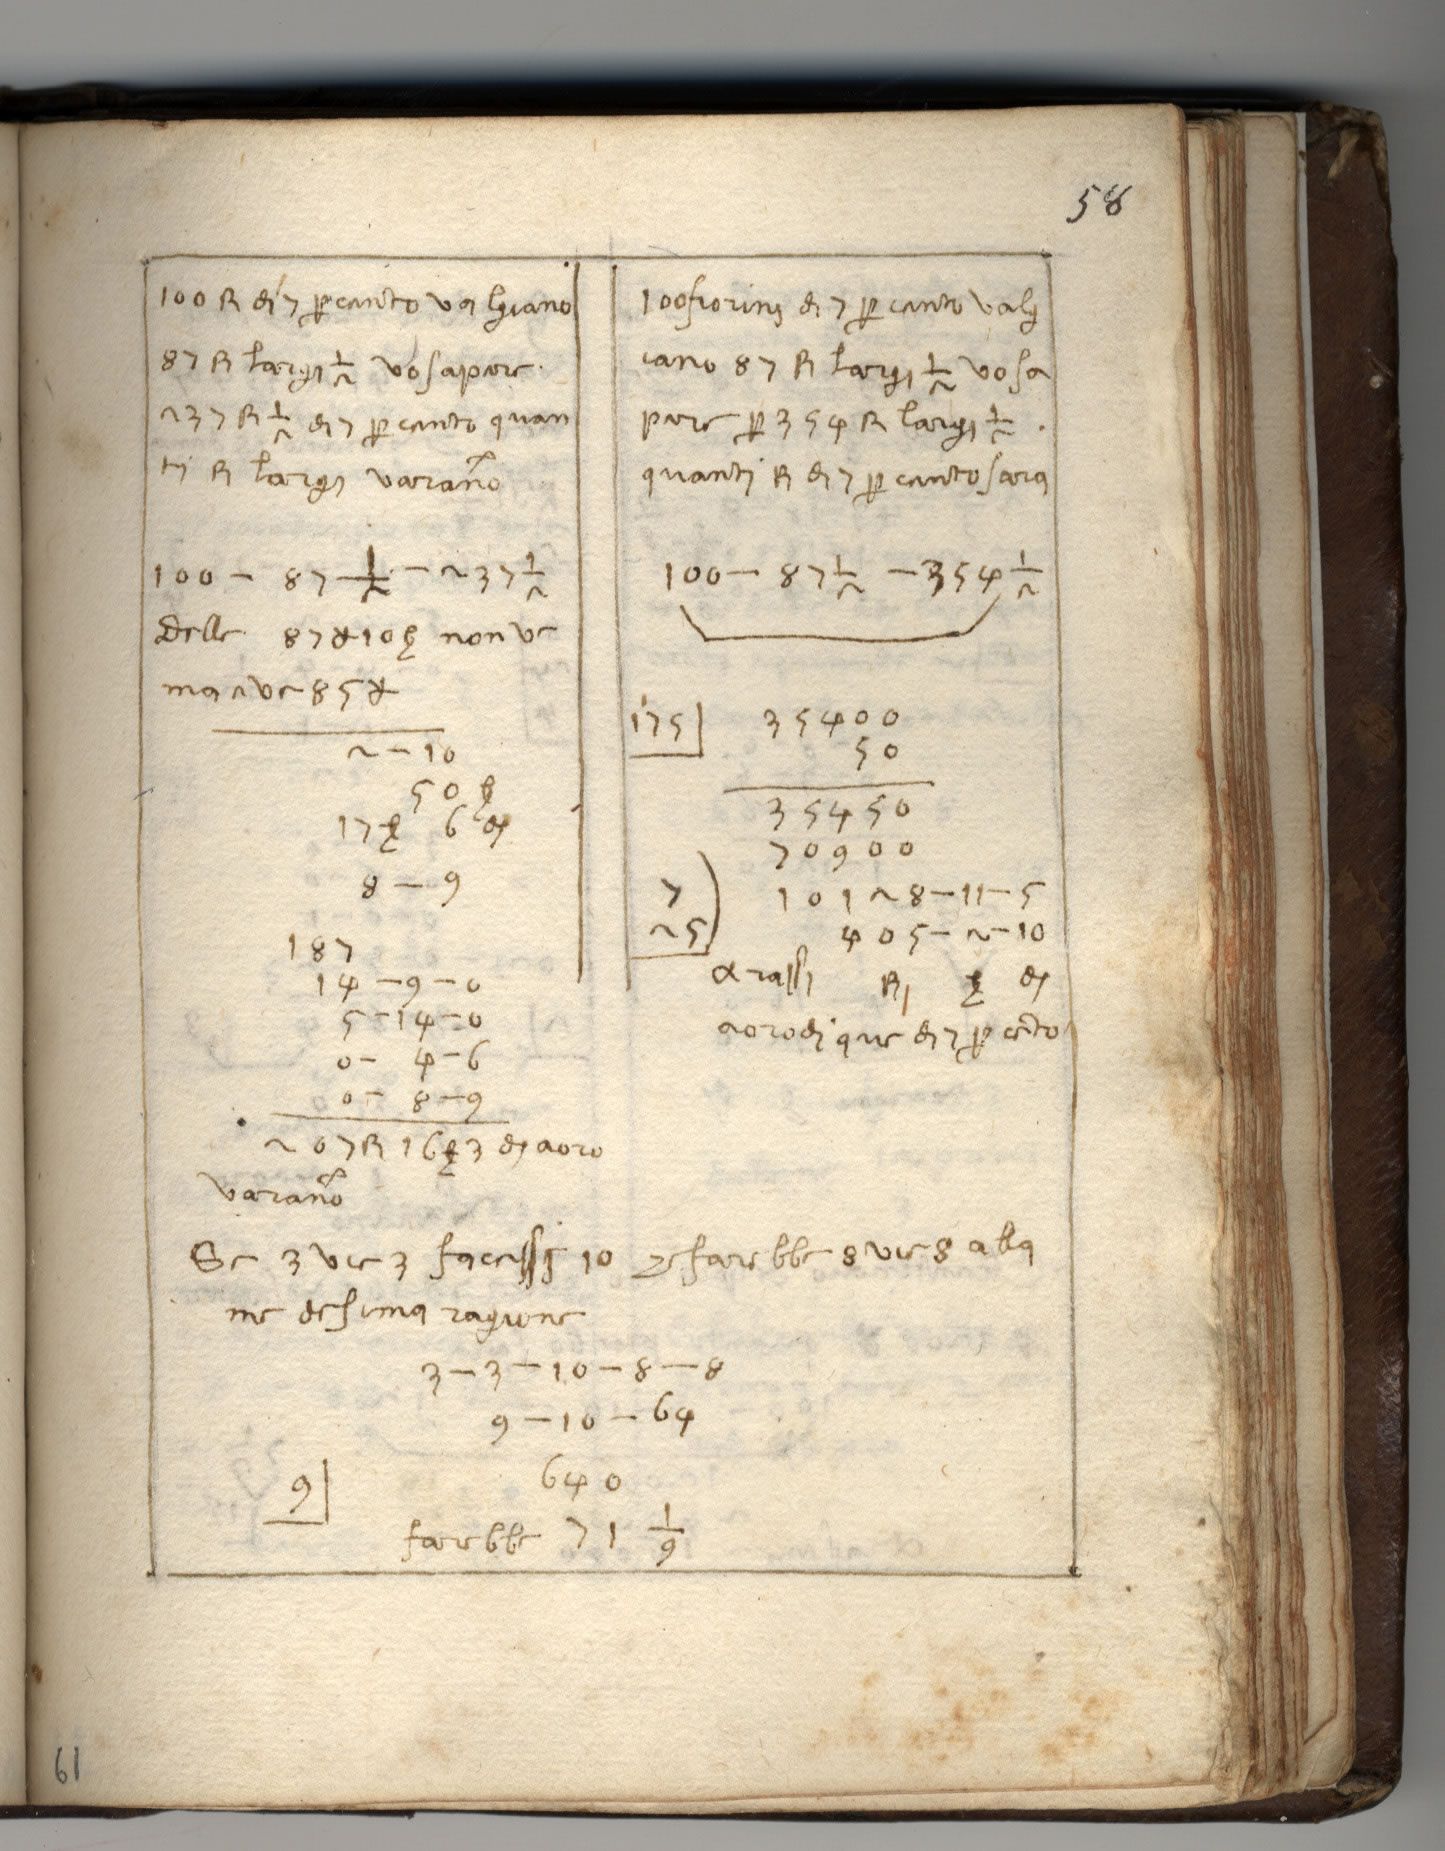 58
100 ꝶ di 7 ꝑ cento va lgiano
87 ꝶ largi 1/2 vo sapere
237 ꝶ 1/2 di 7 ꝑ cento quan
ti ꝶ largi varano
100 – 87 1/2 – 237 1/2
Delle 87 10 non ve
ma ve 85
2 – 10
50
17 6
8 – 9
187
14 – 9 – 0
5 – 14 – 0
0 – 4 – 6
0 – 8 – 9
207 ꝶ 16 3 aoro
varano
100 fiorinj di 7 ꝑ cento valg
iano 87 ꝶ largi 1/2 vo sa
pere ꝑ 354 ꝶ largi 1/2
quantj ꝶ di 7 ꝑ cento sara
100 – 87 1/2 – 354 1/2
175 35400
50
35450
70900
7 10128 – 11 – 5
25 405 – 2 – 10
arassi
aorodj que di 7 ꝑ cẽto
Se 3 vie 3 facessj 10 farebbe 8 vie 8 alla
me desima ragione
3 – 3 – 10 – 8 – 8
9 – 10 – 64
9 640
farebbe 71 1/9
61